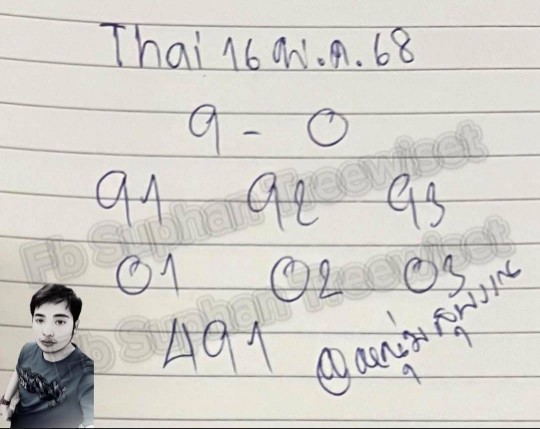 Thai 16 พ.ค.68
9 - 0
91 92 93
01 02 03
491
Fb Suphan Treewiset
Fb Suphan Treewiset